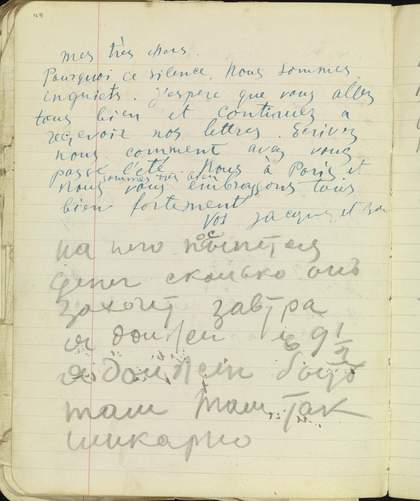 mes très chers.
Pourquoi ce silence. Nous sommes
inquiets. J'espere que vous allez
tous bien et continuez a
recevoir nos lettres. Ecrivez
nous comment avez vous
passé l'été. Nous à Paris et
sommes très bien
Nous vous embrassons tous
bien fortement
Vos Jacques et
на него
денег сколько онъ
захочит завтра
я должен в 9 1/2
я должен быть
там там так
шикарно